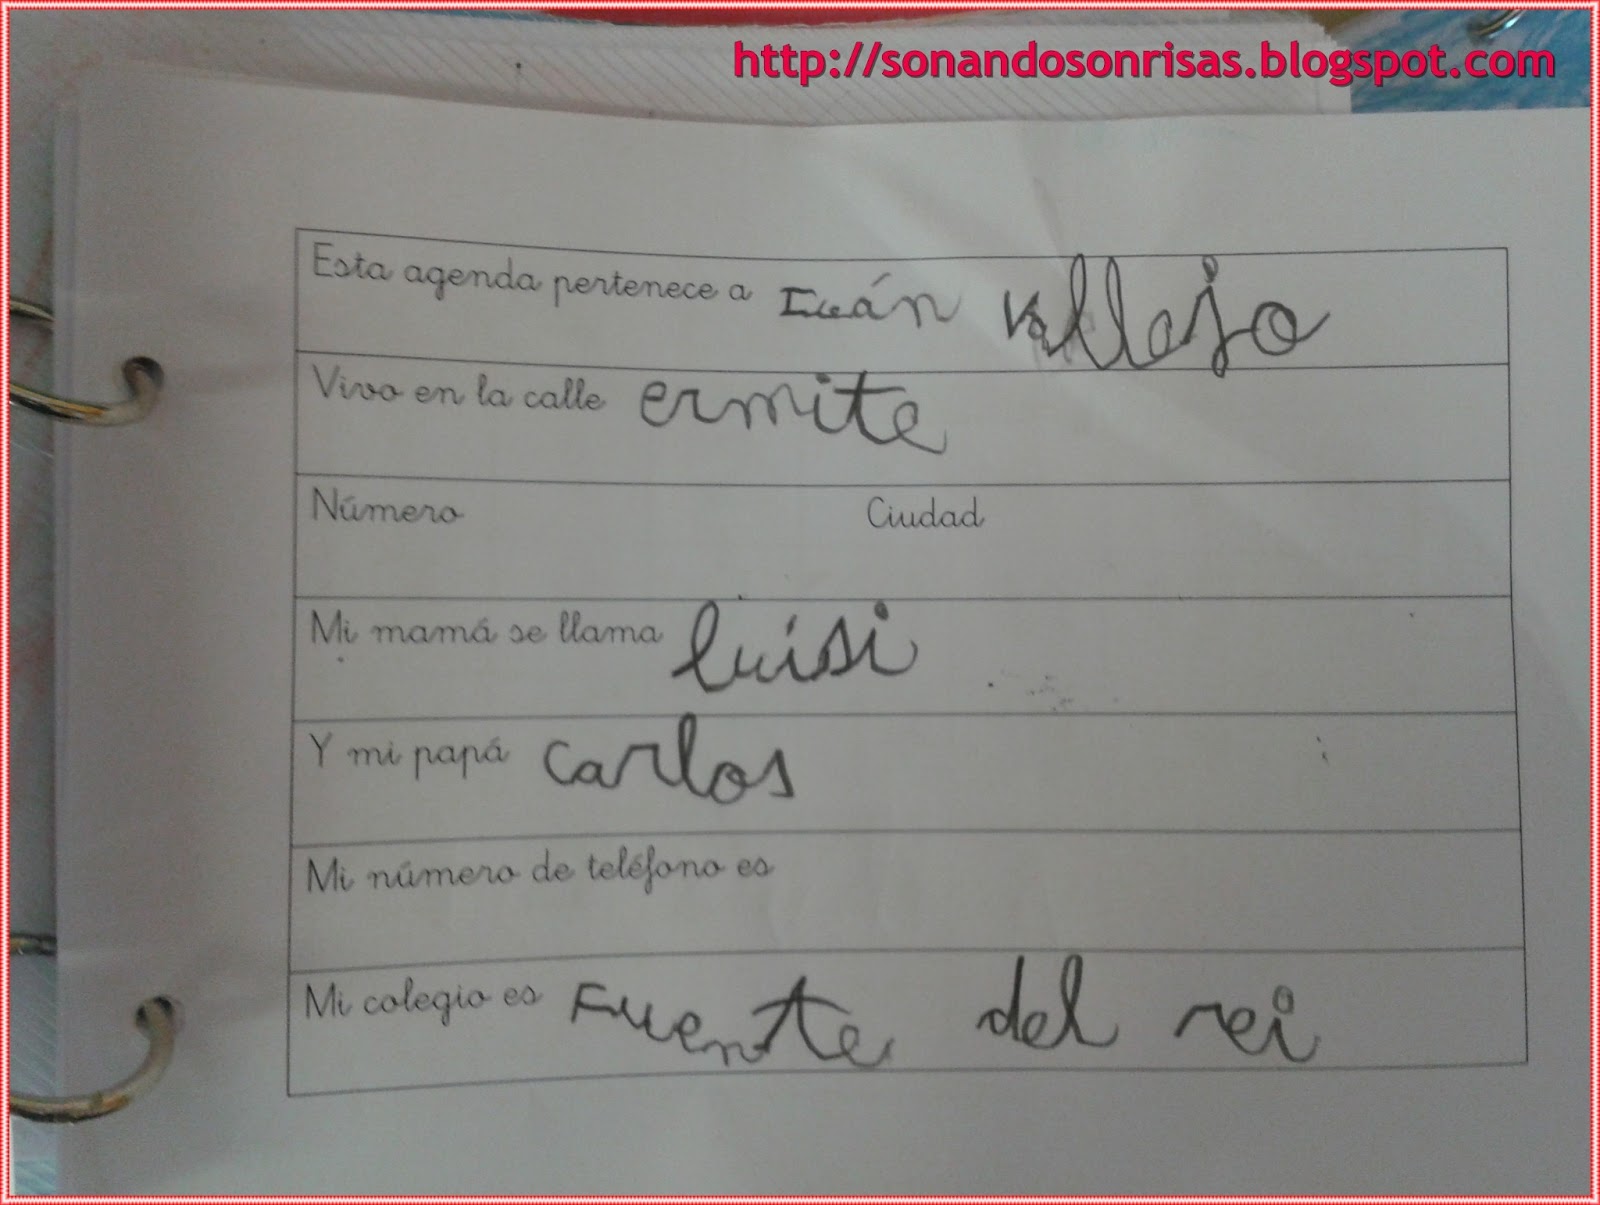 http://sonandosonrisas.blogspot.com
Esta agenda pertenece a Iván Vallejo
Vivo en la calle ermite
Número Ciudad
Mi mamá se llama luísi
Y mi papá carlos
Mi número de teléfono es
Mi colegio es Fuente del rei